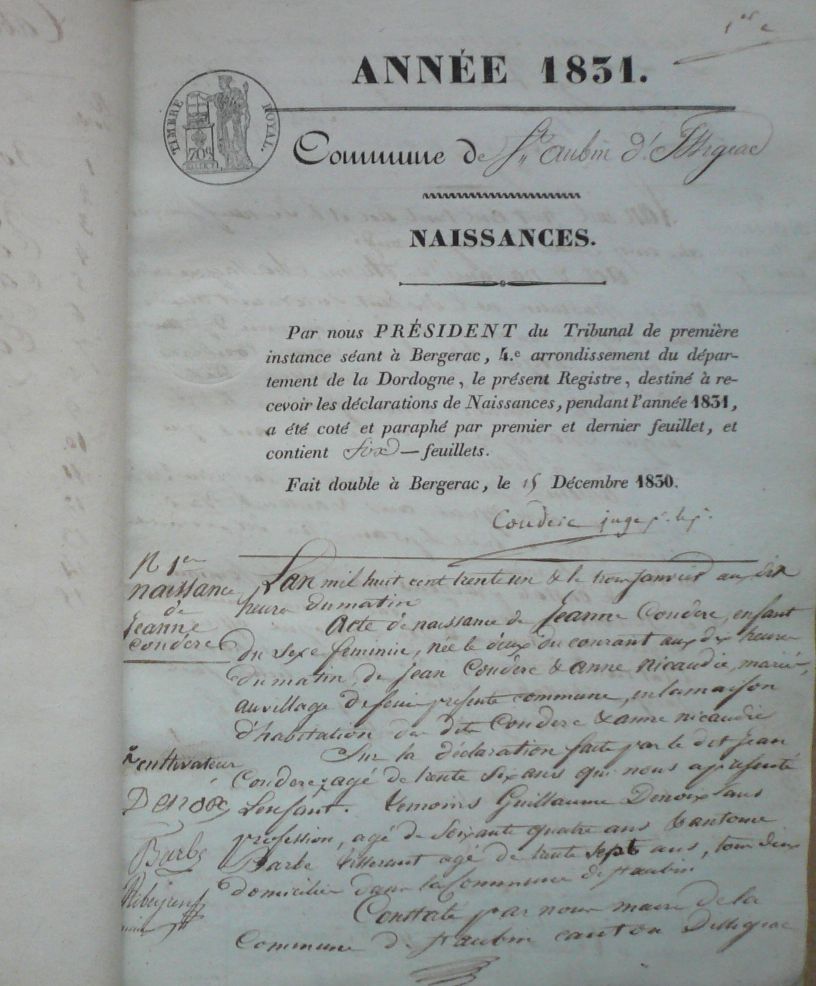 1er
ANNÉE 1831.
TIMBRE ROYAL.
Commune de St aubin d'
NAISSANCES.
Par nous PRÉSIDENT du Tribunal de première
instance séant à Bergerac, 4.e arrondissement du dépar-
tement de la Dordogne, le présent Registre, destiné à re-
cevoir les déclarations de Naissances, pendant l'année 1831,
a été coté et paraphé par premier et dernier feuillet, et
contient Six — feuillets.
Fait double à Bergerac, le 15 Décembre 1830.
Couderc juge
N 1er
naissance
de
Jeanne
Couderc
Lan mil huit cent trente un & le trois janvier aux dix
heures du matin
Acte de naissance de Jeanne Couderc, enfant
du sexe feminin, née le deux du courant aux dix heures
du matin, de Jean Couderc & anne Nicaudie, mariés,
au village de presente commune, en la maison
d'habitation du dit Couderc & anne nicaudie
Sur la déclaration faite par le dit Jean
Couderc, agé de trente six ans qui nous a presenté
Lenfant. Temoins Guillaume Denoix sans
profession, agé de soixante quatre ans & antoine
Barbe agé de trente sept ans, tous deux
domiciliés dans la Commune de St aubin
Constaté par nous maire de la
Commune de St aubin canton
cultivateur
Denoix
Barbe